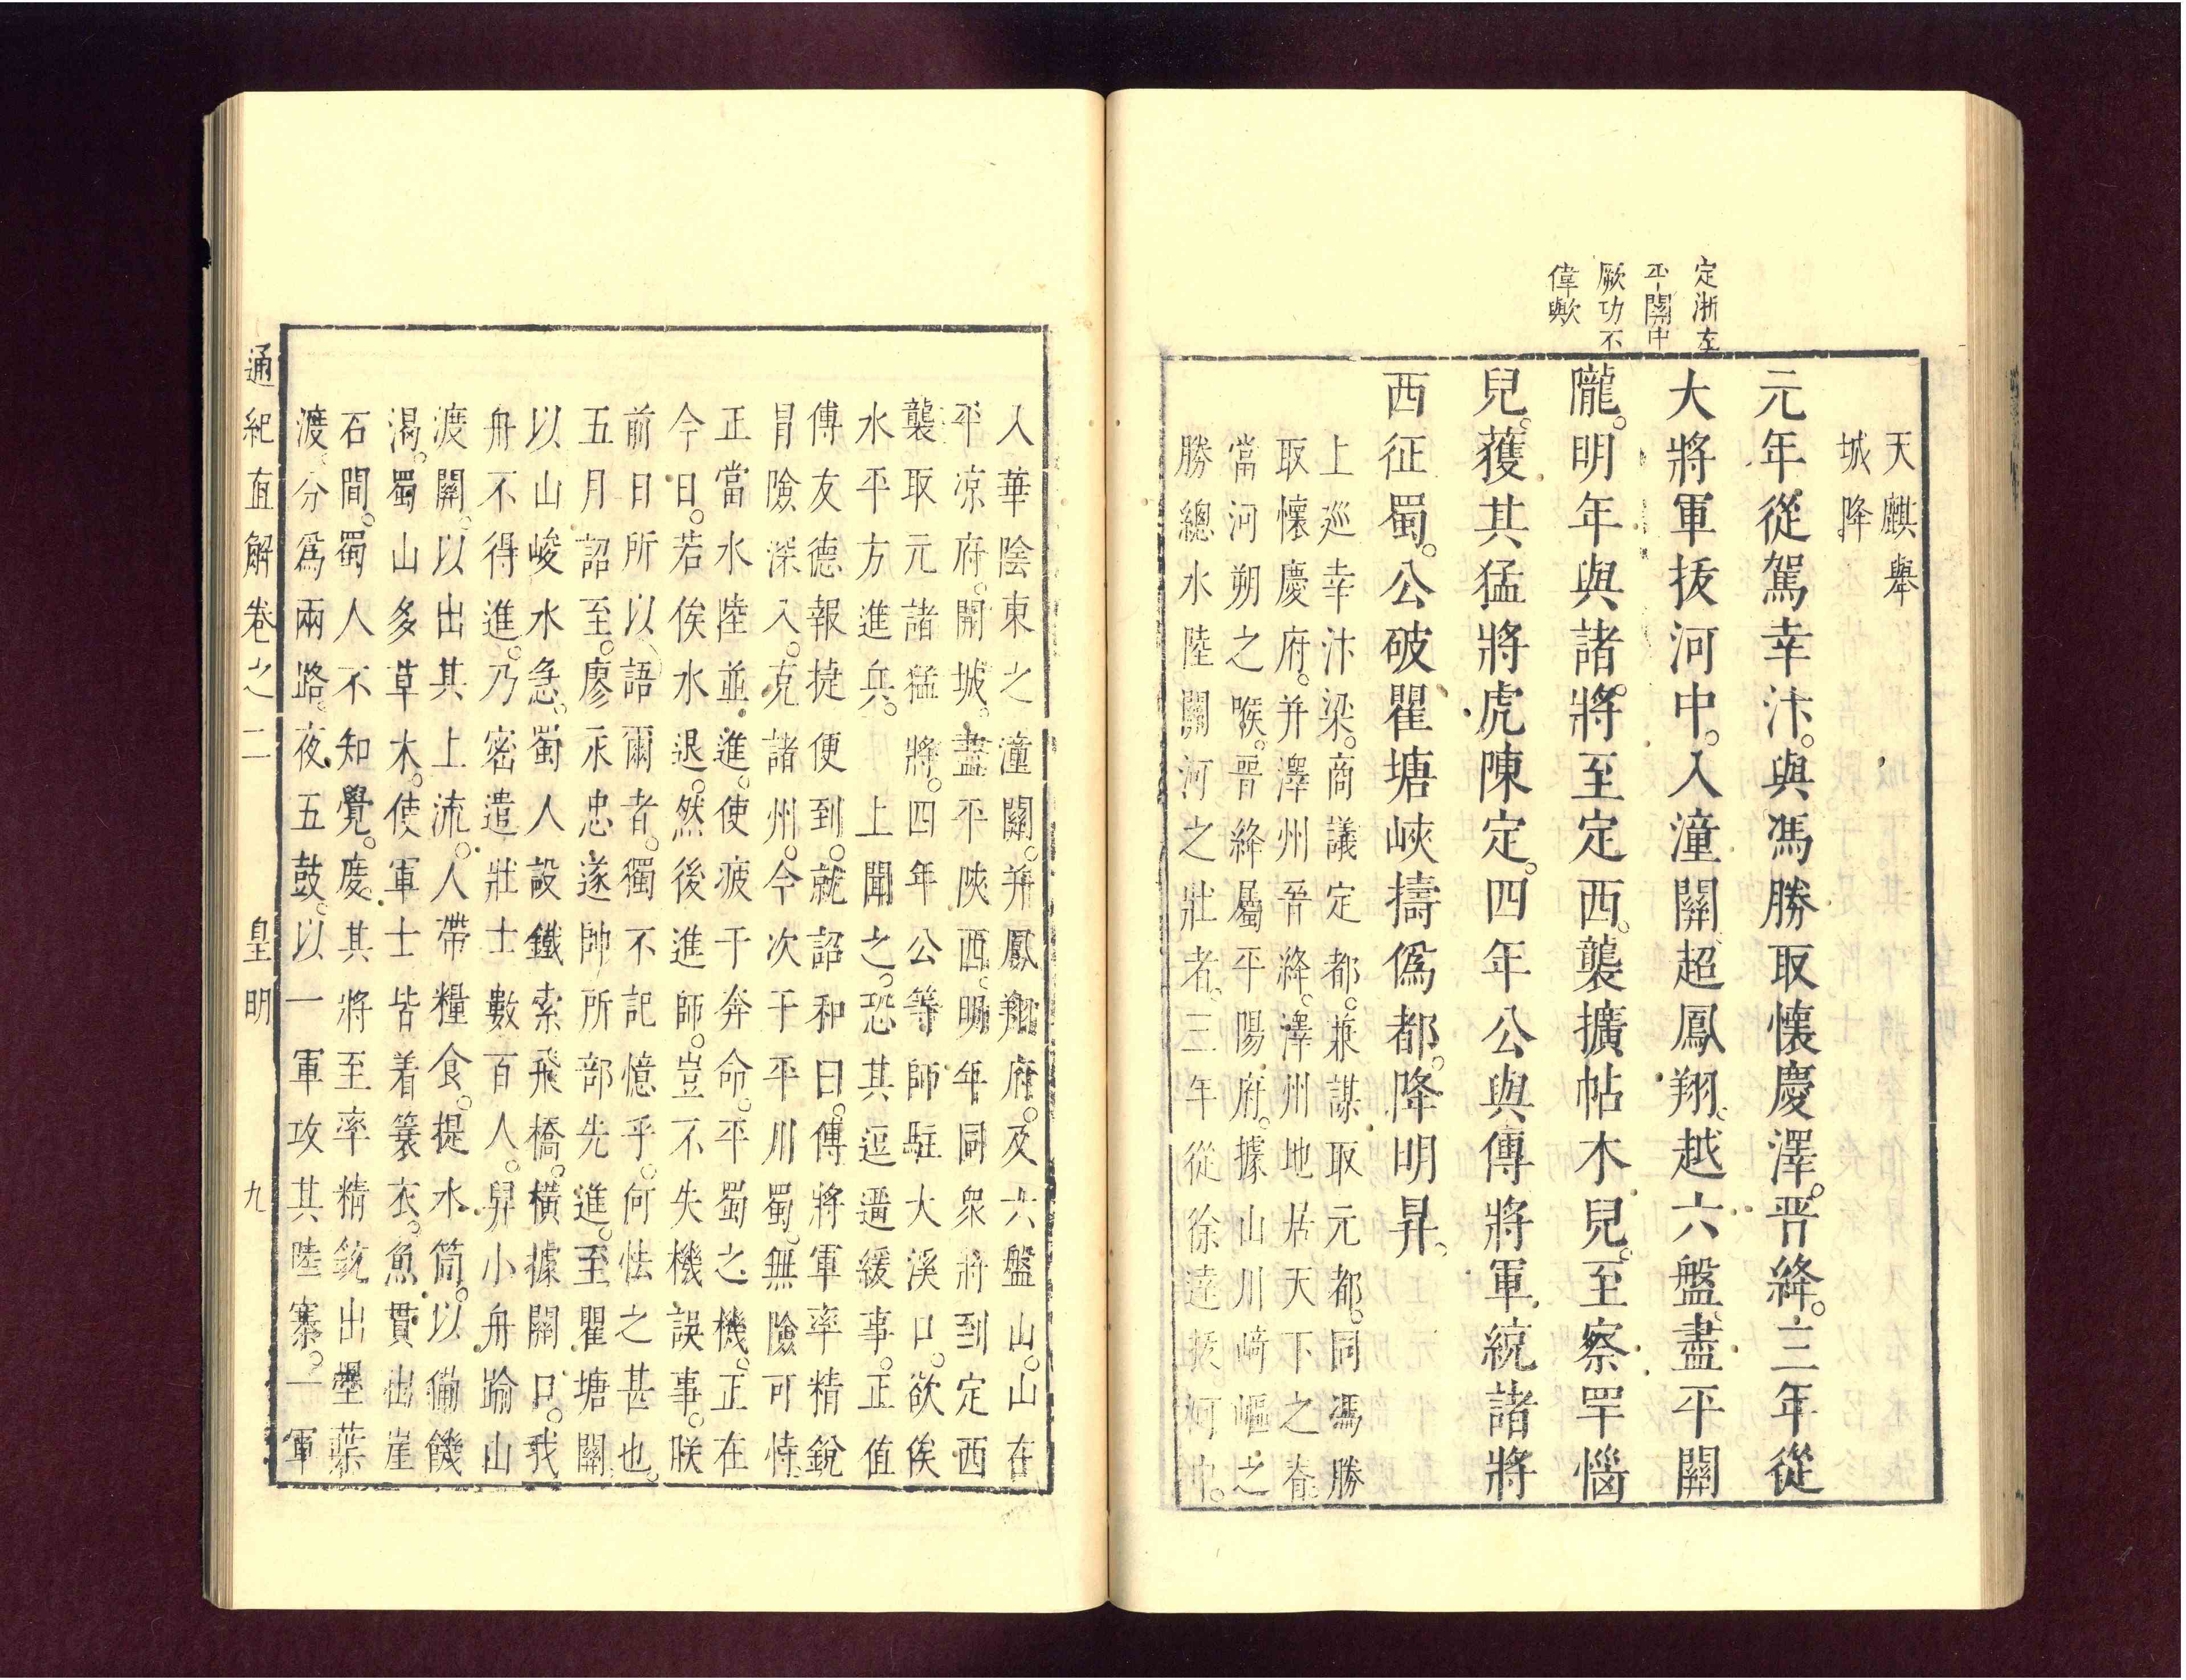 定浙左
平關中
厥功不
偉歟
天麒舉
城降。
元年從駕幸汴。與馮勝取懷慶澤。晉絳。三年從
大將軍拔河中。入潼關超鳳翔。越六盤盡平關
隴。明年與諸將至定西。襲擴帖木兒。至察罕惱
兒。獲其猛將虎陳定。四年公與傅將軍統諸將
西征蜀。公破瞿塘峽擣僞都。降明昇。
上廵幸汴梁。商議定都。兼謀取元都。同馮勝
取懷慶府。并澤州晉絳。澤州地居天下之脊
當河朔之喉。晉絳屬平陽府。據山川﨑嶇之
勝總水陸關河之壯者。三年從徐達拔河中。
入華陰東之潼關。并鳳翔府。及六盤山。山在
平凉府。開城。盡平陝西。明年同衆將到定西
襲取元諸猛將。四年公等師駐大溪口。欲俟
水平方進兵。上聞之。恐其逗遛緩事。正值
傅友德報捷便到。就詔和曰。傅將軍率精銳
冐險深入。克諸州。今次于平川蜀。無險可恃。
正當水陸並進。使疲于奔命。平蜀之機。正在
今日。若俟水退。然後進師。豈不失機誤事。朕
前日所以語爾者。獨不記憶乎。何怯之甚也。
五月詔至。廖永忠遂帥所部先進。至瞿塘關。
以山峻水急。蜀人設鐵索飛橋。橫據關口。我
舟不得進。乃密遣壯士數百人。舁小舟踰山
渡關。以出其上流。人帶糧食。提水筒。以備饑
渴。蜀山多草木。使軍士皆着簑衣。魚貫出崖
石間。蜀人不知覺。度其將至率精銳出壘葉
渡。分爲兩路。夜五鼓。以一軍攻其陸寨。一軍
通紀直解卷之二　皇明　九